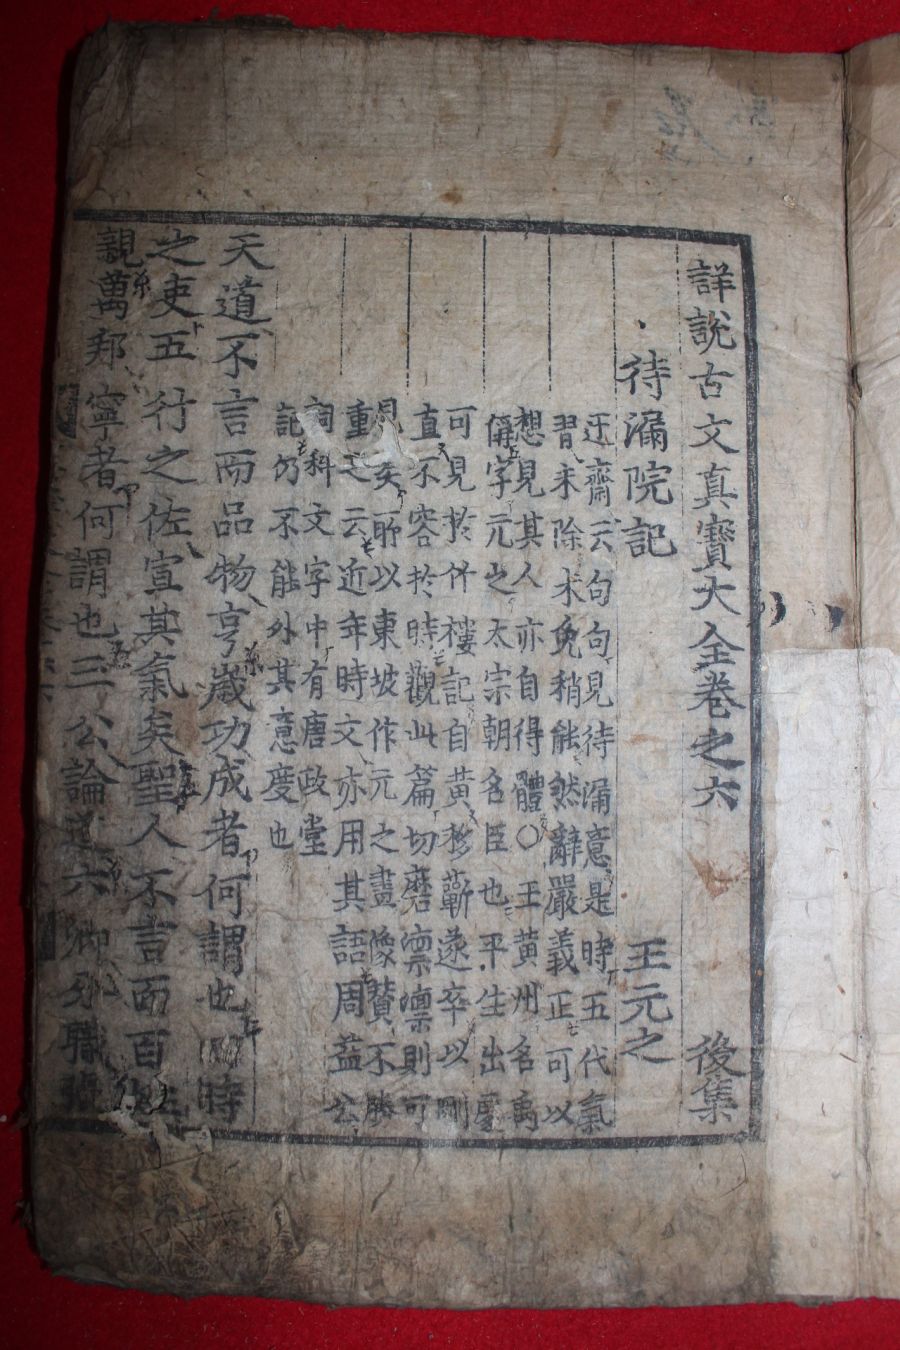 詳說古文真寶大全卷之六 後集
待漏院記 王元之
迂齋云句句見待漏意是時五代氣
習未除未免稍能然辭嚴義正可以
想見其人亦自得體○王黃州名禹
偁字元之太宗朝名臣也平生出處
可見於竹樓記自黃移蘄遂卒以剛
直不容於時觀此篇切磨凛凛則可
見矣所以東坡作元之畫像贊不勝
重之云近年時文亦用其語周益公
詞科文字中有唐政堂
記仍不能外其意度也
天道不言而品物亨歲功成者何謂也四時
之吏五行之佐宣其氣矣聖人不言而百姓
親萬邦寧者何謂也三公論道六卿分職張